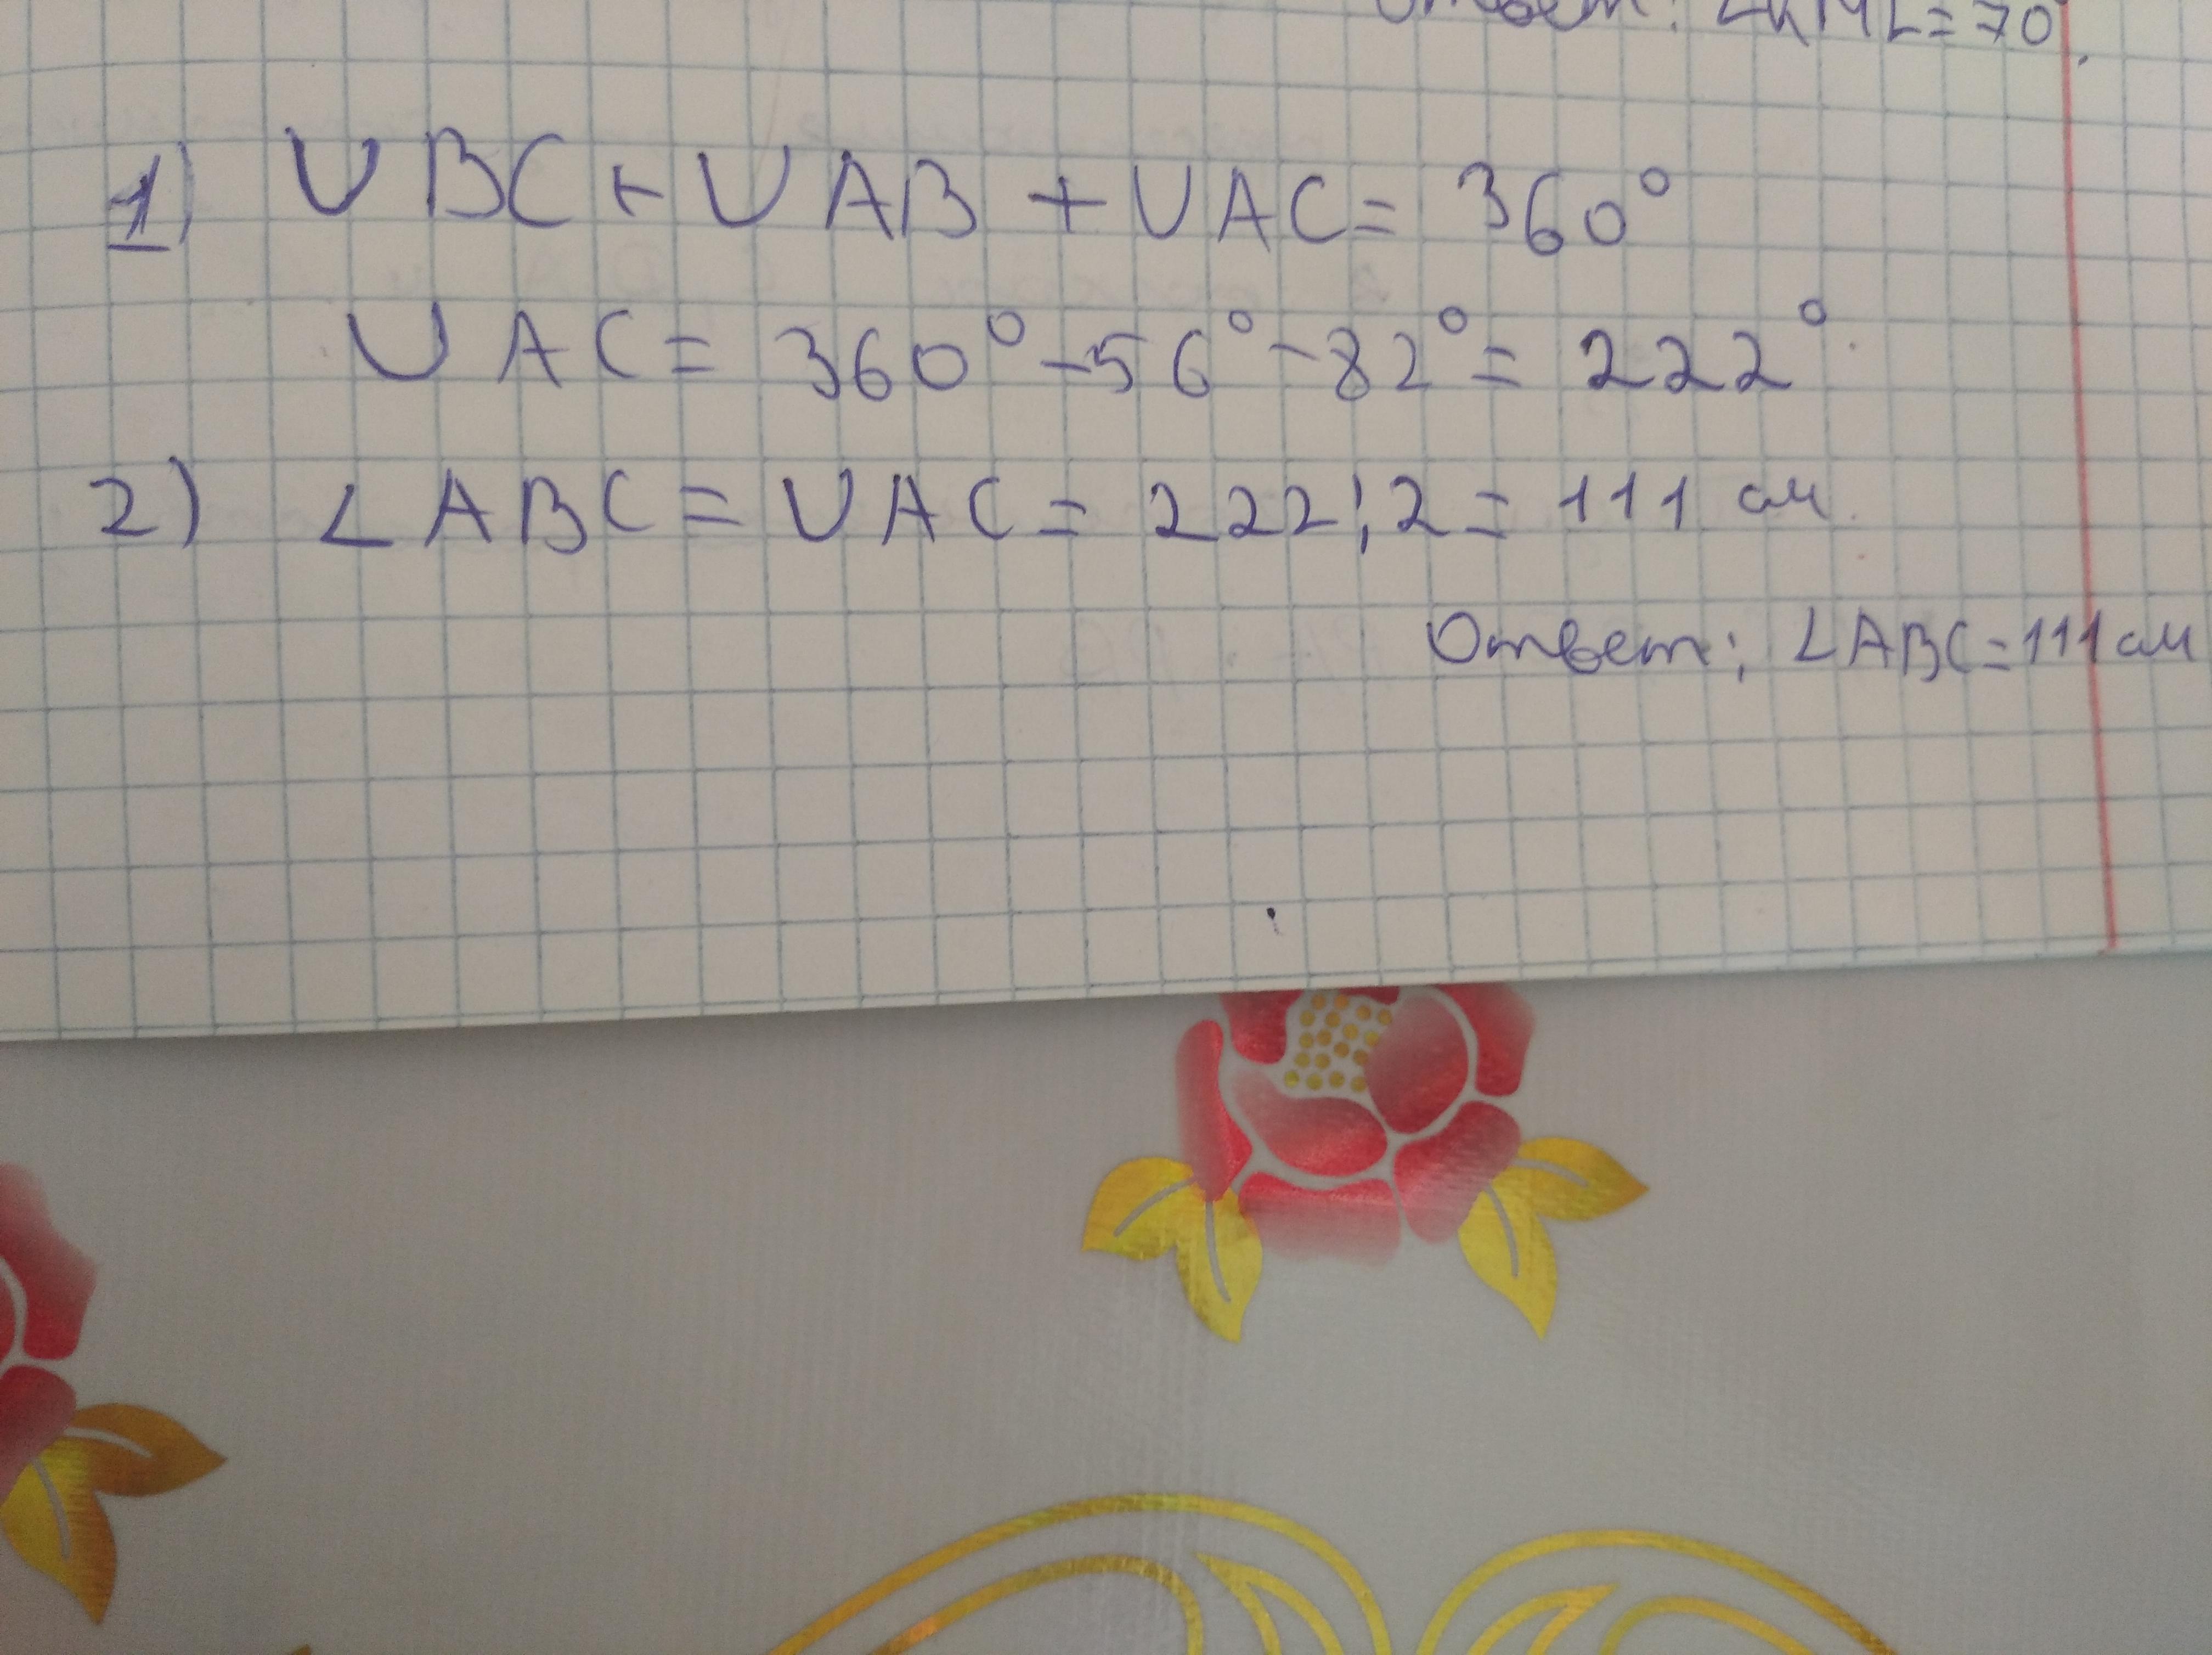 Ответ: ∠KML=70
1) ∪BC+∪AB+∪AC=360°
∪AC=360°-56°-82°=222°.
2) ∠ABC=∪AC=222:2=111 см.
Ответ: ∠ABC=111см